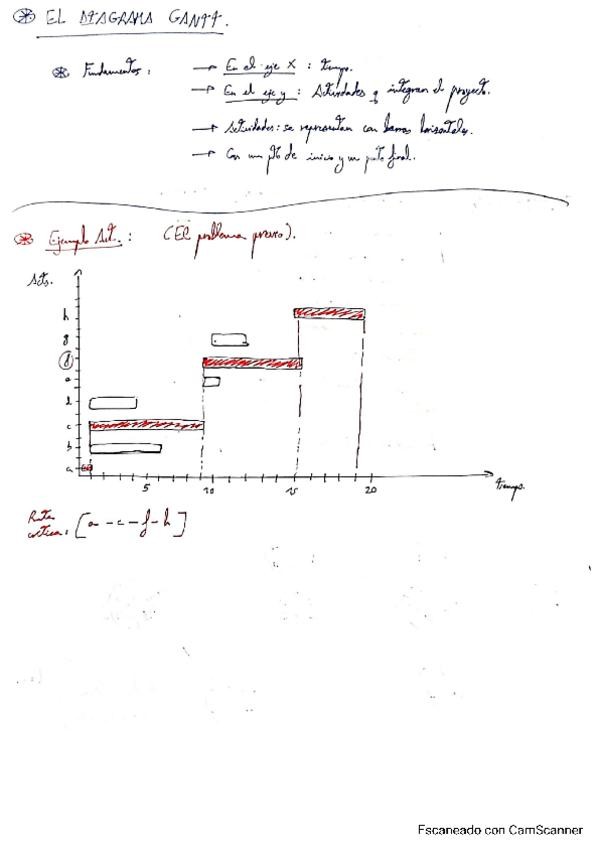 EL DIAGRAMA GANTT.
Fundamentos: → En el eje X : tiempo.
→ En el eje y : Actividades q integran el proyecto.
→ Actividades: se representan con barras horizontales.
→ Con un pto de inicio y un pto final.
Ejemplo Act. : (El problema previo).
Acts.
h
g
f
e
d
c
b
a
5 10 15 20
tiempo.
Ruta
crítica: [a-c-f-h]
Escaneado con CamScanner